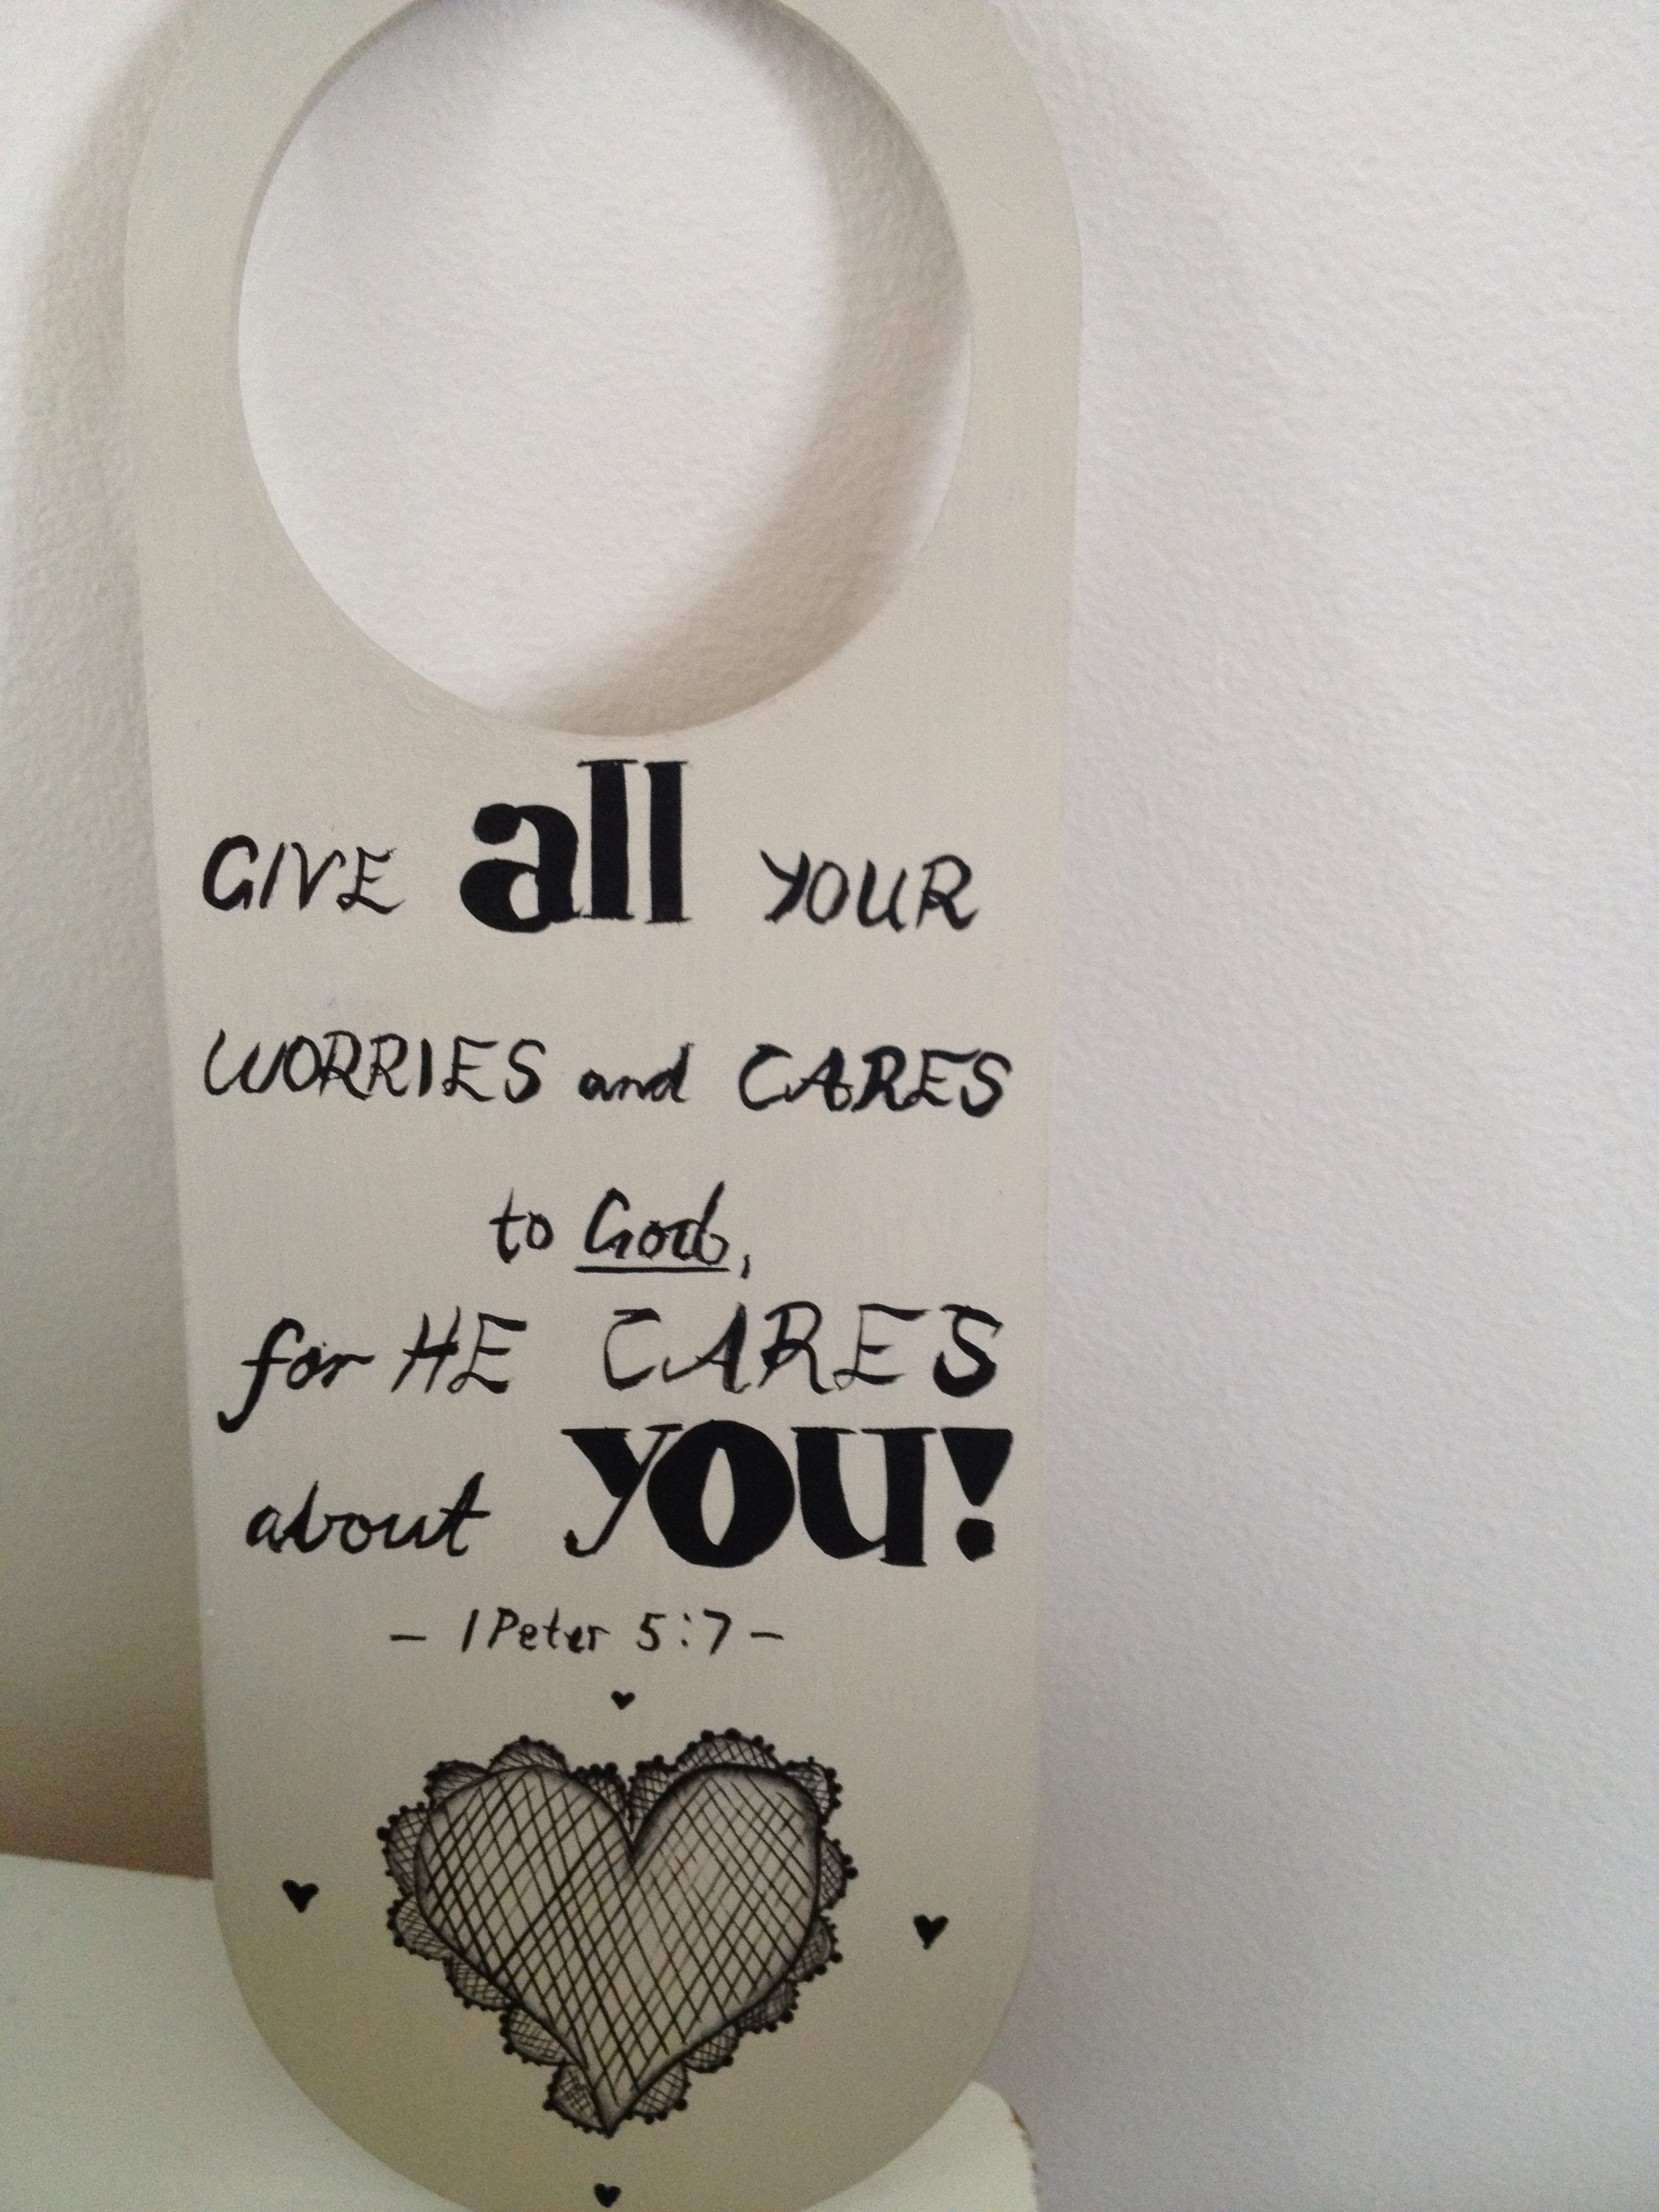 GIVE all YOUR
WORRIES and CARES
to God,
for HE CARES
about YOU!
- 1 Peter 5:7 -